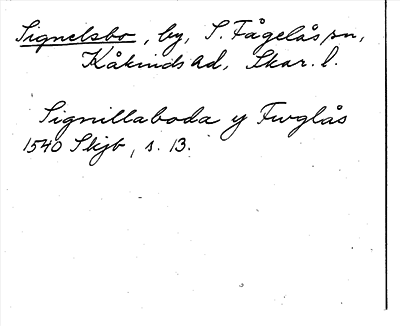 Signelsbo, by, S. Fågelås sn,
Kåkinds hd, Skar. l.
Signillaboda y Fwglås
1540 Skjb, s. 13.